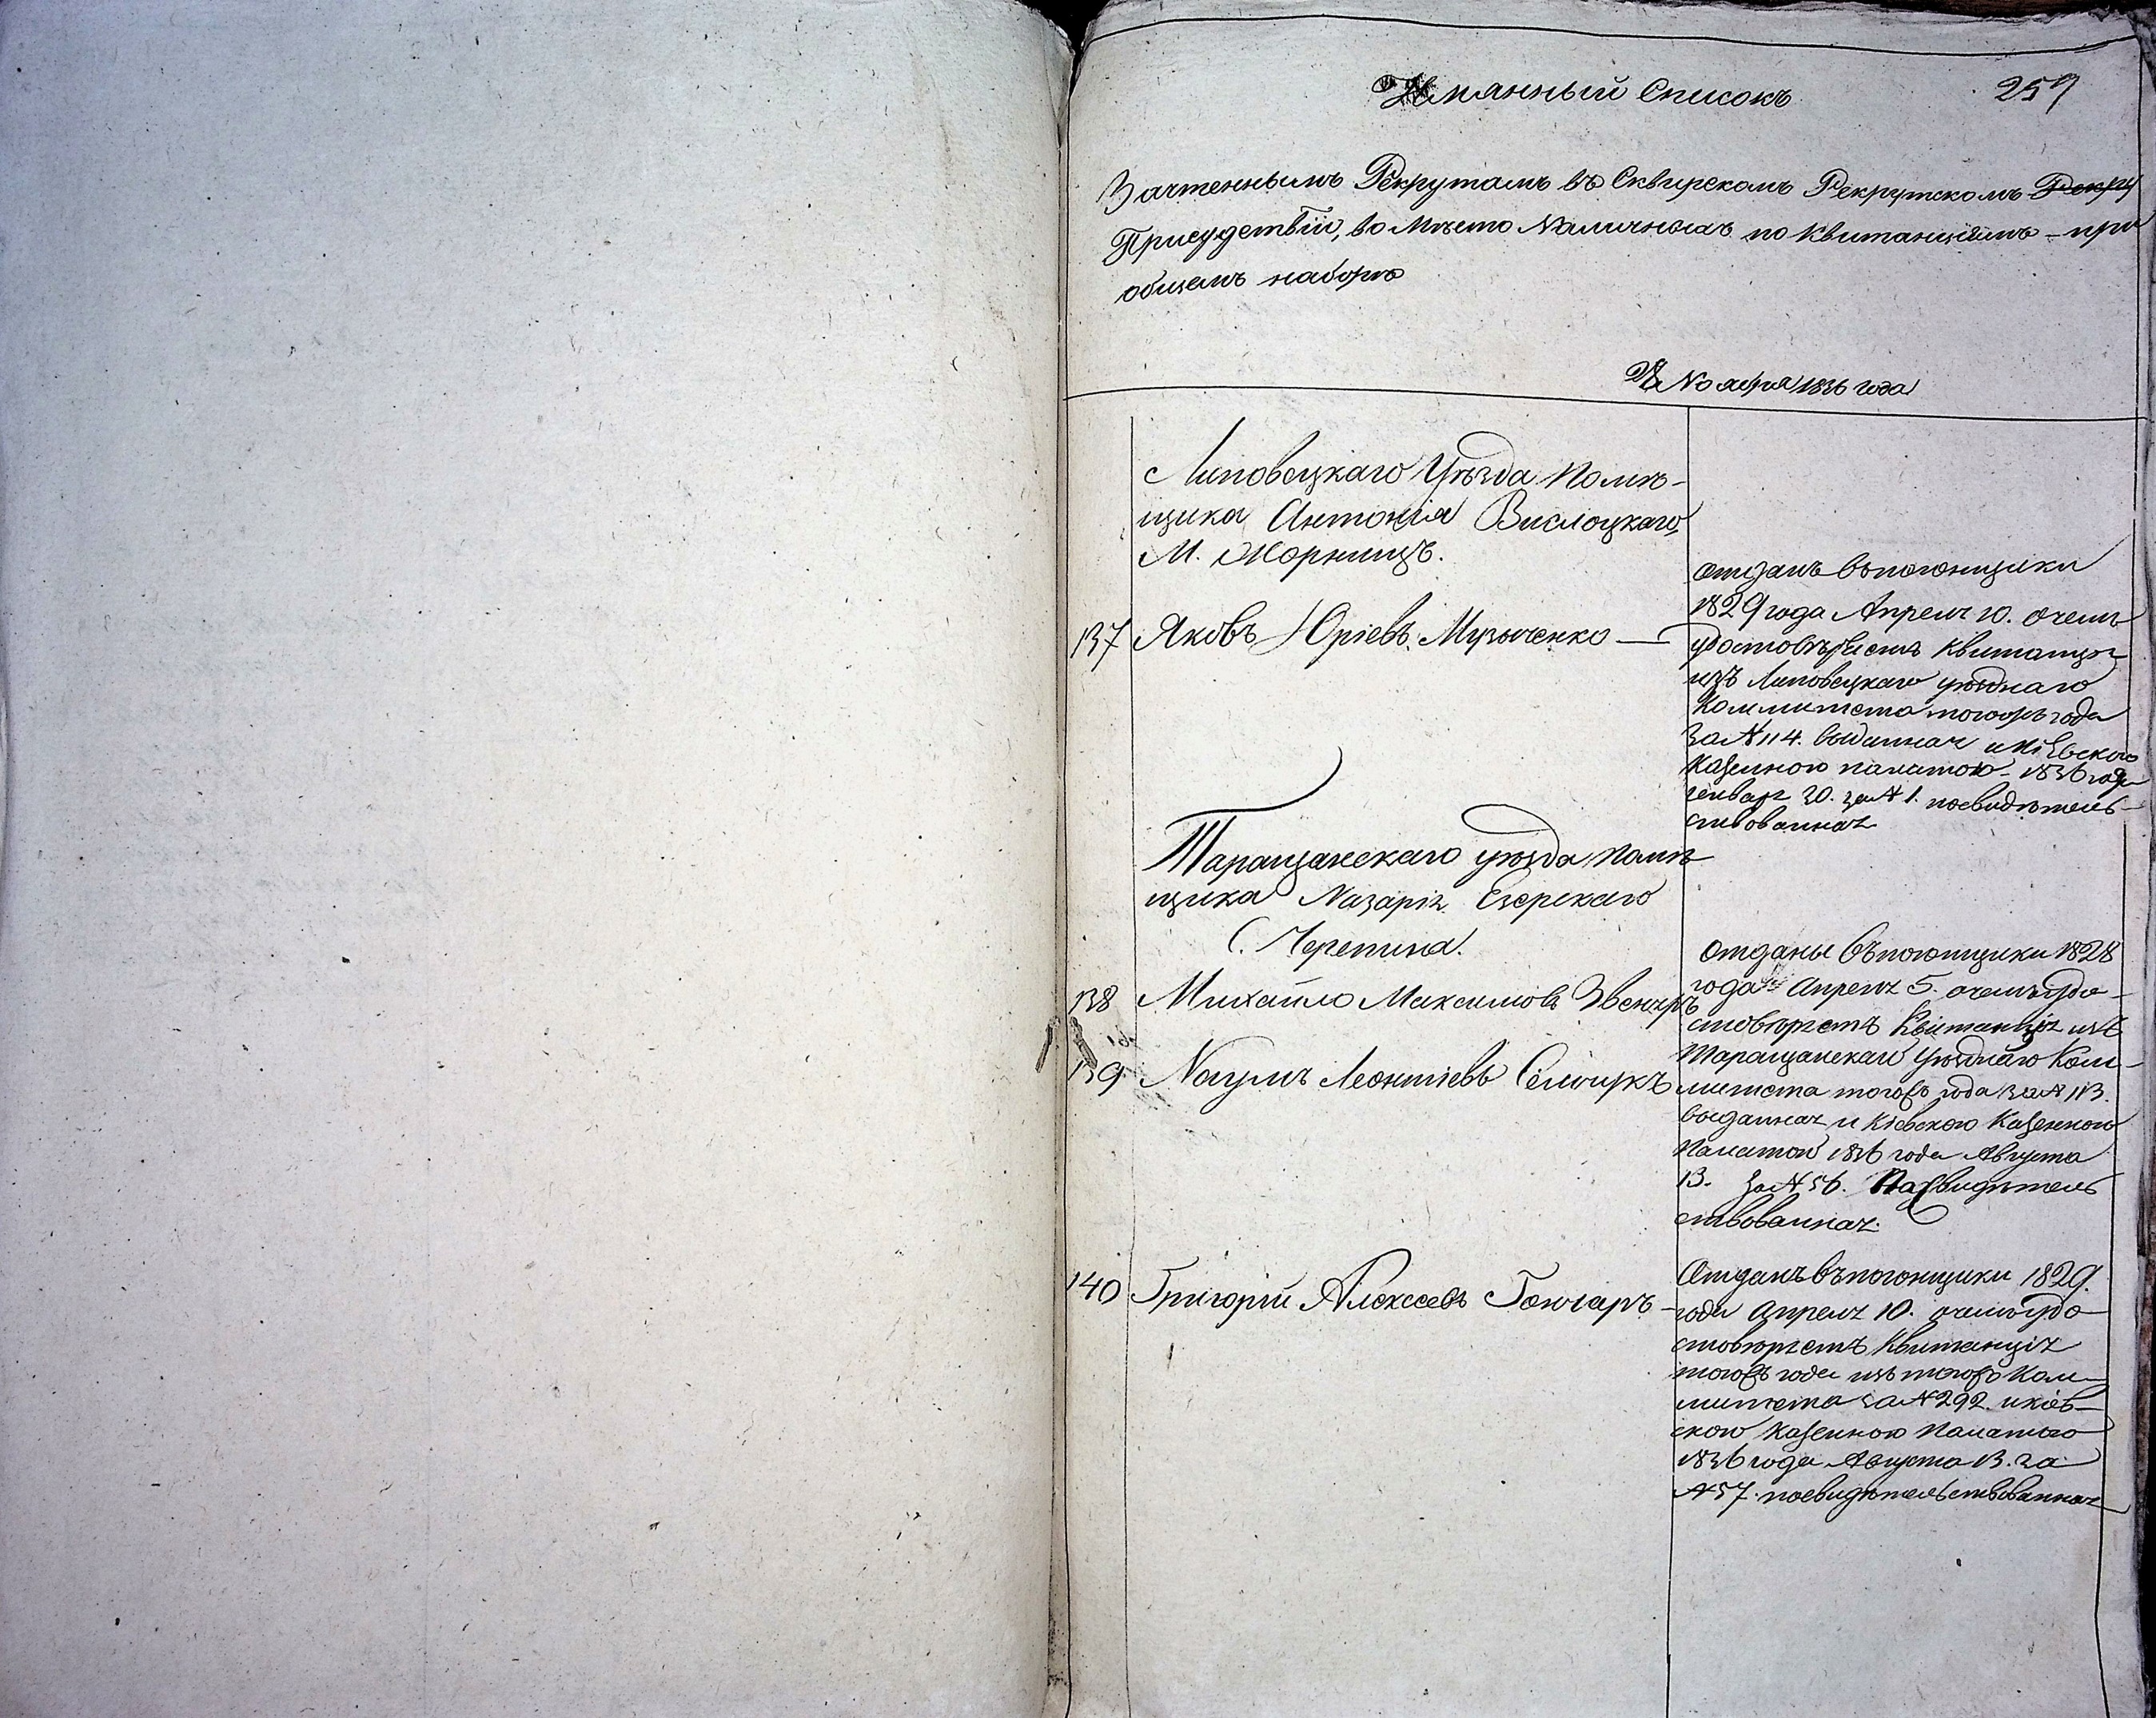 Имянный Списокъ
257
Зачтеннымъ Рекрутамъ въ Сквирскомъ Рекрутскомъ Рекру
Присудствіи, во мѣсто Наличныхъ по Квитанціямъ - при
общемъ наборѣ
Ноября 1836 года
Липовецкаго Уѣзда Помѣ-
щика Антонія Вислоцкаго,
М. Жорнищъ.
137 Яковъ Юріевъ Музыченко —
отданъ въ погонщики
1829 года Апреля 10. о чемъ
удостовѣряетъ Квитанція
изъ Липовецкаго уѣзднаго
Коммитета тогожъ года
за № 114. выданная и Кіевскою
Казенною палатою - 1836 года
генваря 30. за № 1. посвидѣтель-
ствованная
Таращанскаго уѣзда Помѣ
щика Назарія Езерскаго
С. Черепина.
138 Михайло Максимовъ Звенарь
139 Наумъ Леонтіевъ
отданы въ погонщики 1828
года Апреля 5. о чемъ удо-
стовѣряетъ Квитанція изъ
Таращанскаго Уѣзднаго Ком-
митета тогожъ года за № 113.
выданная и Кіевскою Казенною
Палатою 1836 года Августа
13. за № 56. Посвидѣтель
ствованная.
140 Григорій Алексеевъ Гончаръ -
Отданъ въ погонщики 1829.
года Апреля 10. о чемъ удо
стовѣряетъ Квитанція
тогожъ года изъ тогожъ Ком-
митета за № 292. и Кіев-
скою Казенною Палатою
1836 года Августа 13. за
№ 57. посвидѣтельствованная